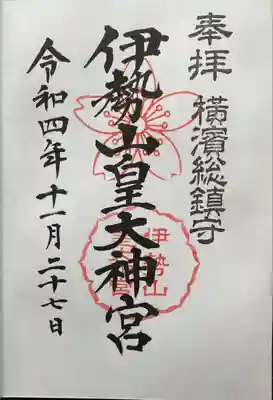 奉拝 横濱総鎮守
伊勢山皇大神宮
令和四年十一月二十七日
伊勢山
皇大神宮